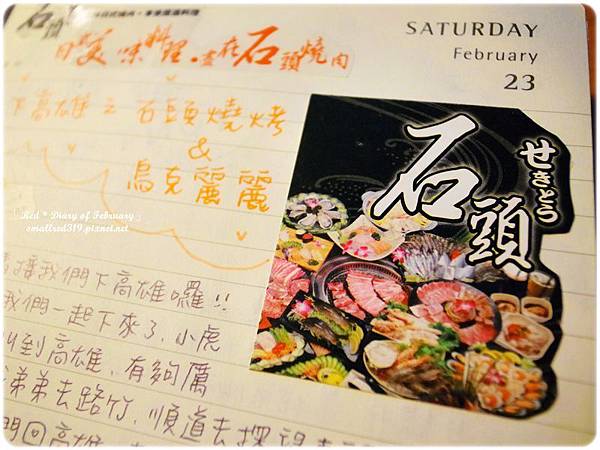 石頭日式燒肉・
SATURDAY
February
23
美味料理.盡在石頭燒肉
下高雄之 石頭燒烤
&
烏克麗麗
石頭
せきとう
Red * Diary of February
smallred319.pixnet.net
我們下高雄囉!!
我們一起下來了,小虎
到高雄,有夠厲
弟弟去路竹,順道去探
回高雄